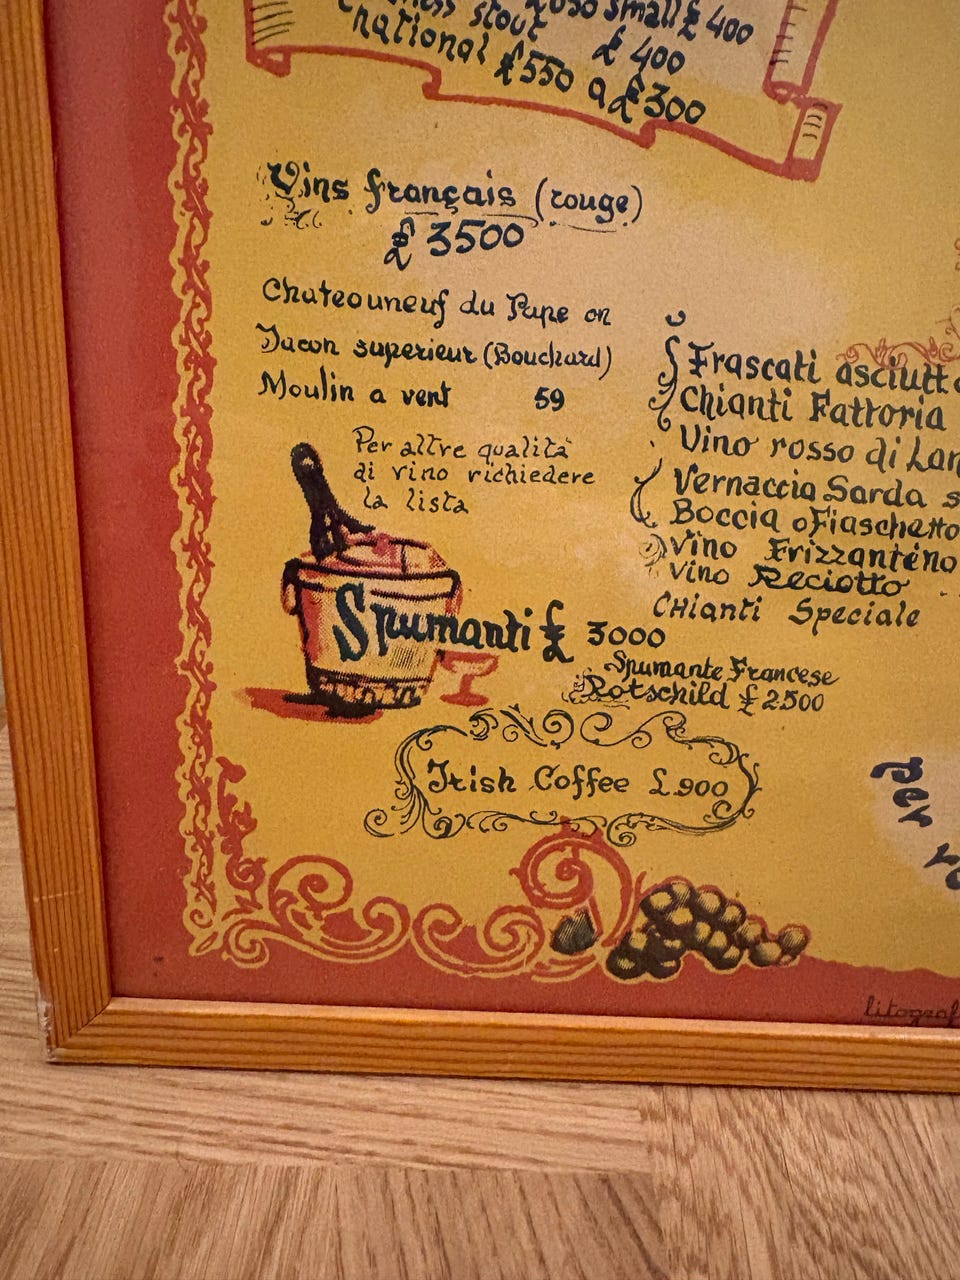 stout small £ 400
£ 400
national £550 a £300
Vins français (rouge)
£ 3500
Chateouneuf du Pape on
Macon superieur (Bouchard)
Moulin a vent 59
Per altre qualità
di vino richiedere
la lista
Frascati asciutto
Chianti Fattoria
Vino rosso di Lan
Vernaccia Sarda s
Boccia o Fiaschetto
Vino Frizzantino
Vino Reciotto
CHianti Speciale
Spumanti £ 3000
Spumante Francese
Rotschild £ 2500
Irish Coffee £.900
per
litograf